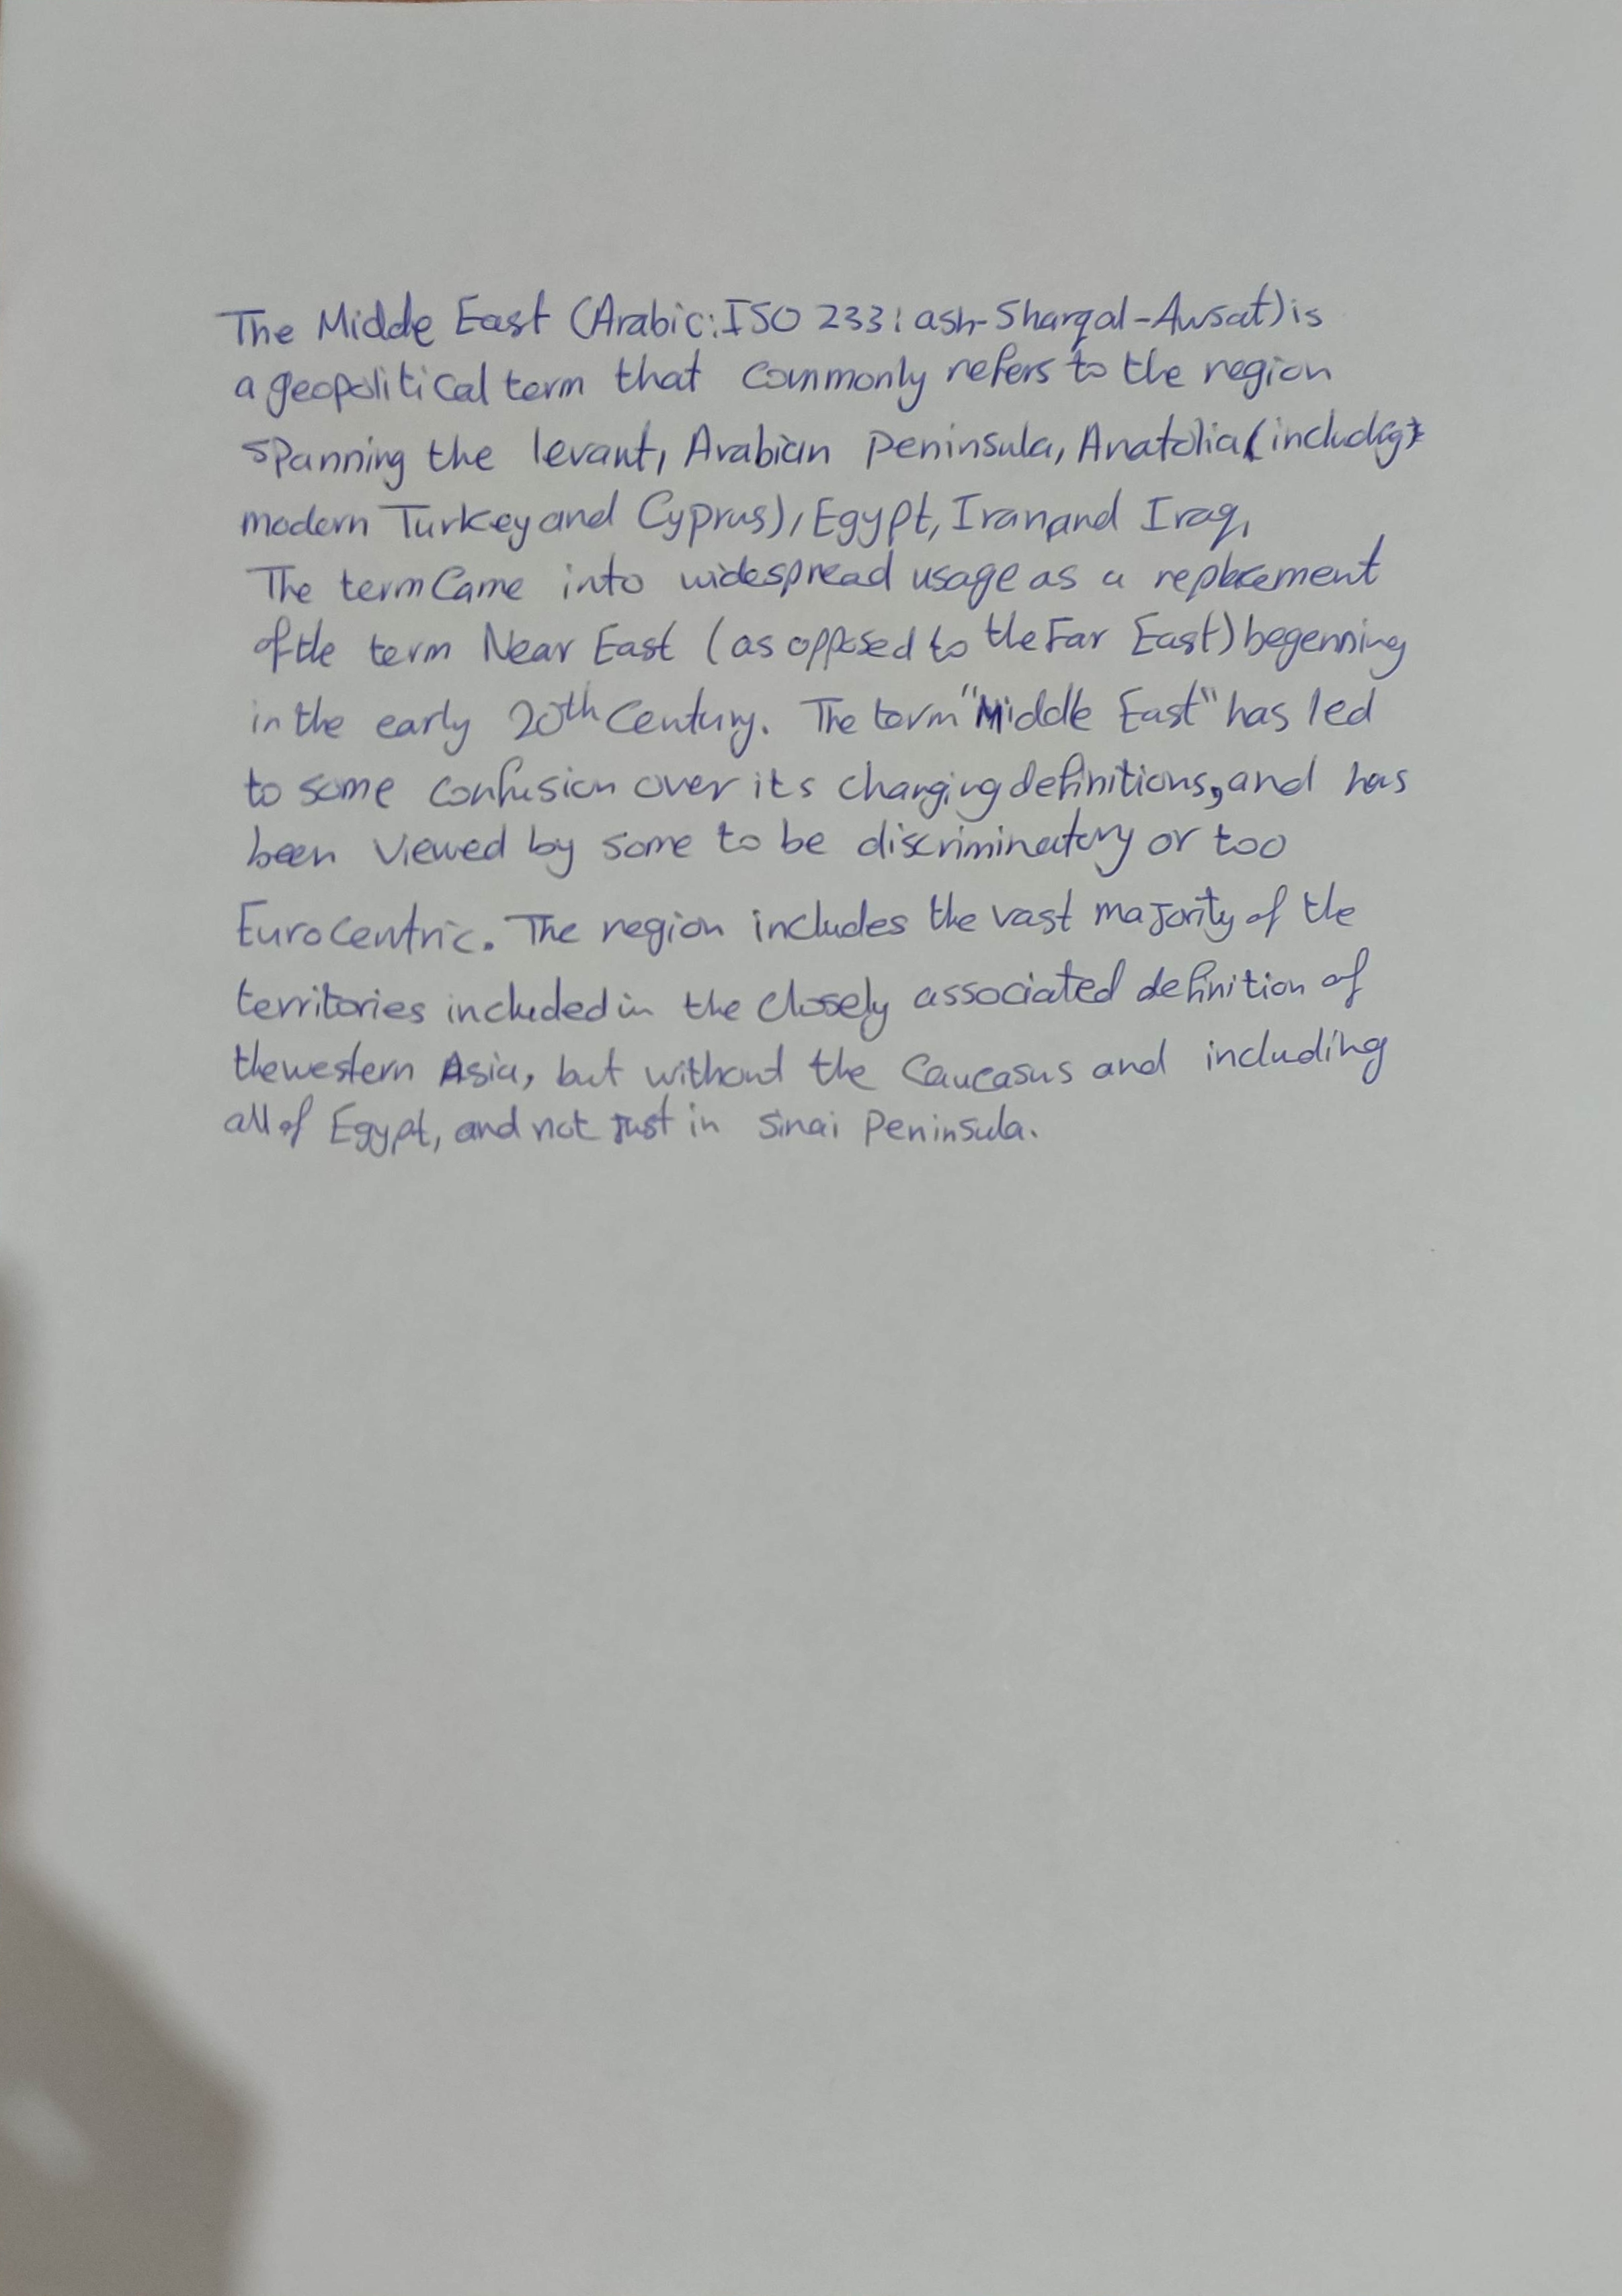 The Middle East (Arabic: ISO 233: ash-Sharqal-Awsat) is
a geopolitical term that commonly refers to the region
spanning the levant, Arabian peninsula, Anatolia (including
modern Turkey and Cyprus), Egypt, Iran and Iraq,
The term Came into widespread usage as a replacement
of the term Near East (as opposed to the Far East) begenning
in the early 20th Century. The term "Middle East" has led
to some confusion over its changing definitions, and has
been viewed by some to be discriminatory or too
EuroCentric. The region includes the vast majority of the
territories included in the closely associated definition of
the western Asia, but without the Caucasus and including
all of Egypt, and not just in Sinai Peninsula.